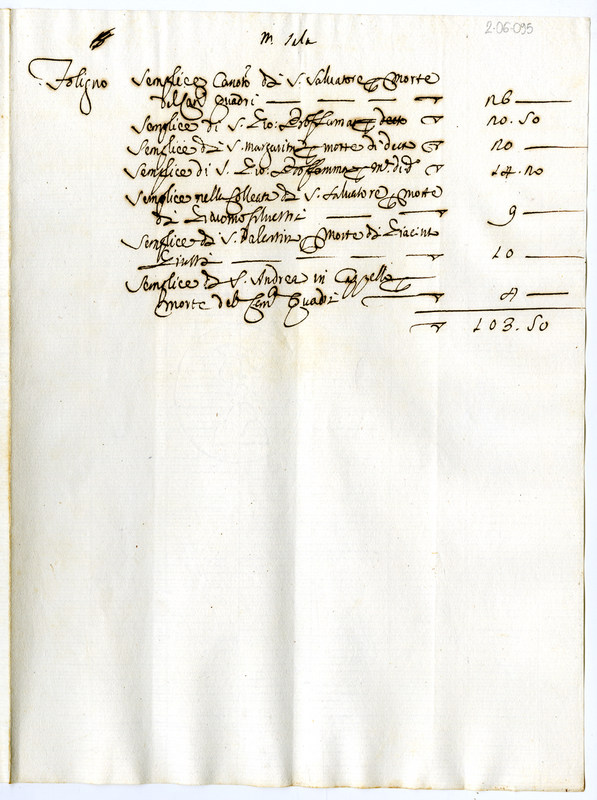 2-06-095
Foligno Semplice Canoto di S. Salvatore p morte
del Quadri 26
Semplice di S. Gio: Proffiamma p detto 20. 50
Semplice di S. Margarita p morte di detto 20
Semplice di S. Gio: Proffiamma p m. di d. 14. 20
Semplice nella Colleg di S. Salvatore p morte
di Giacomo Silvestri 9
Semplice di S. Valentin p morte di Giacint
Giusti 10
Semplice di S. Andrea in Cappella
morte del Quadri 4
103. 50